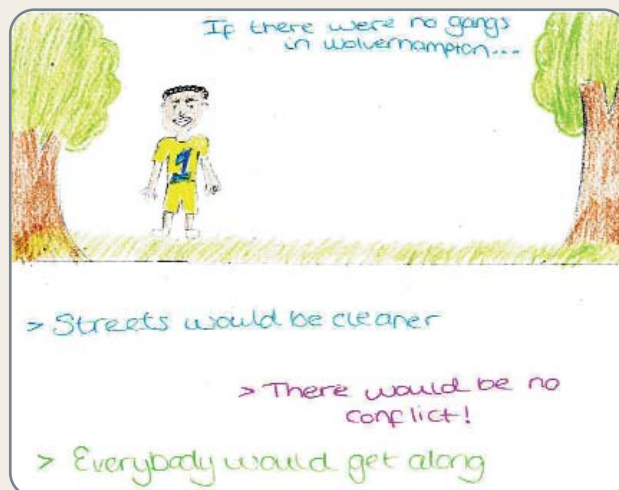 If there were no gangs
in Wolverhampton...
1
> Streets would be cleaner
> There would be no
conflict!
> Everybody would get along